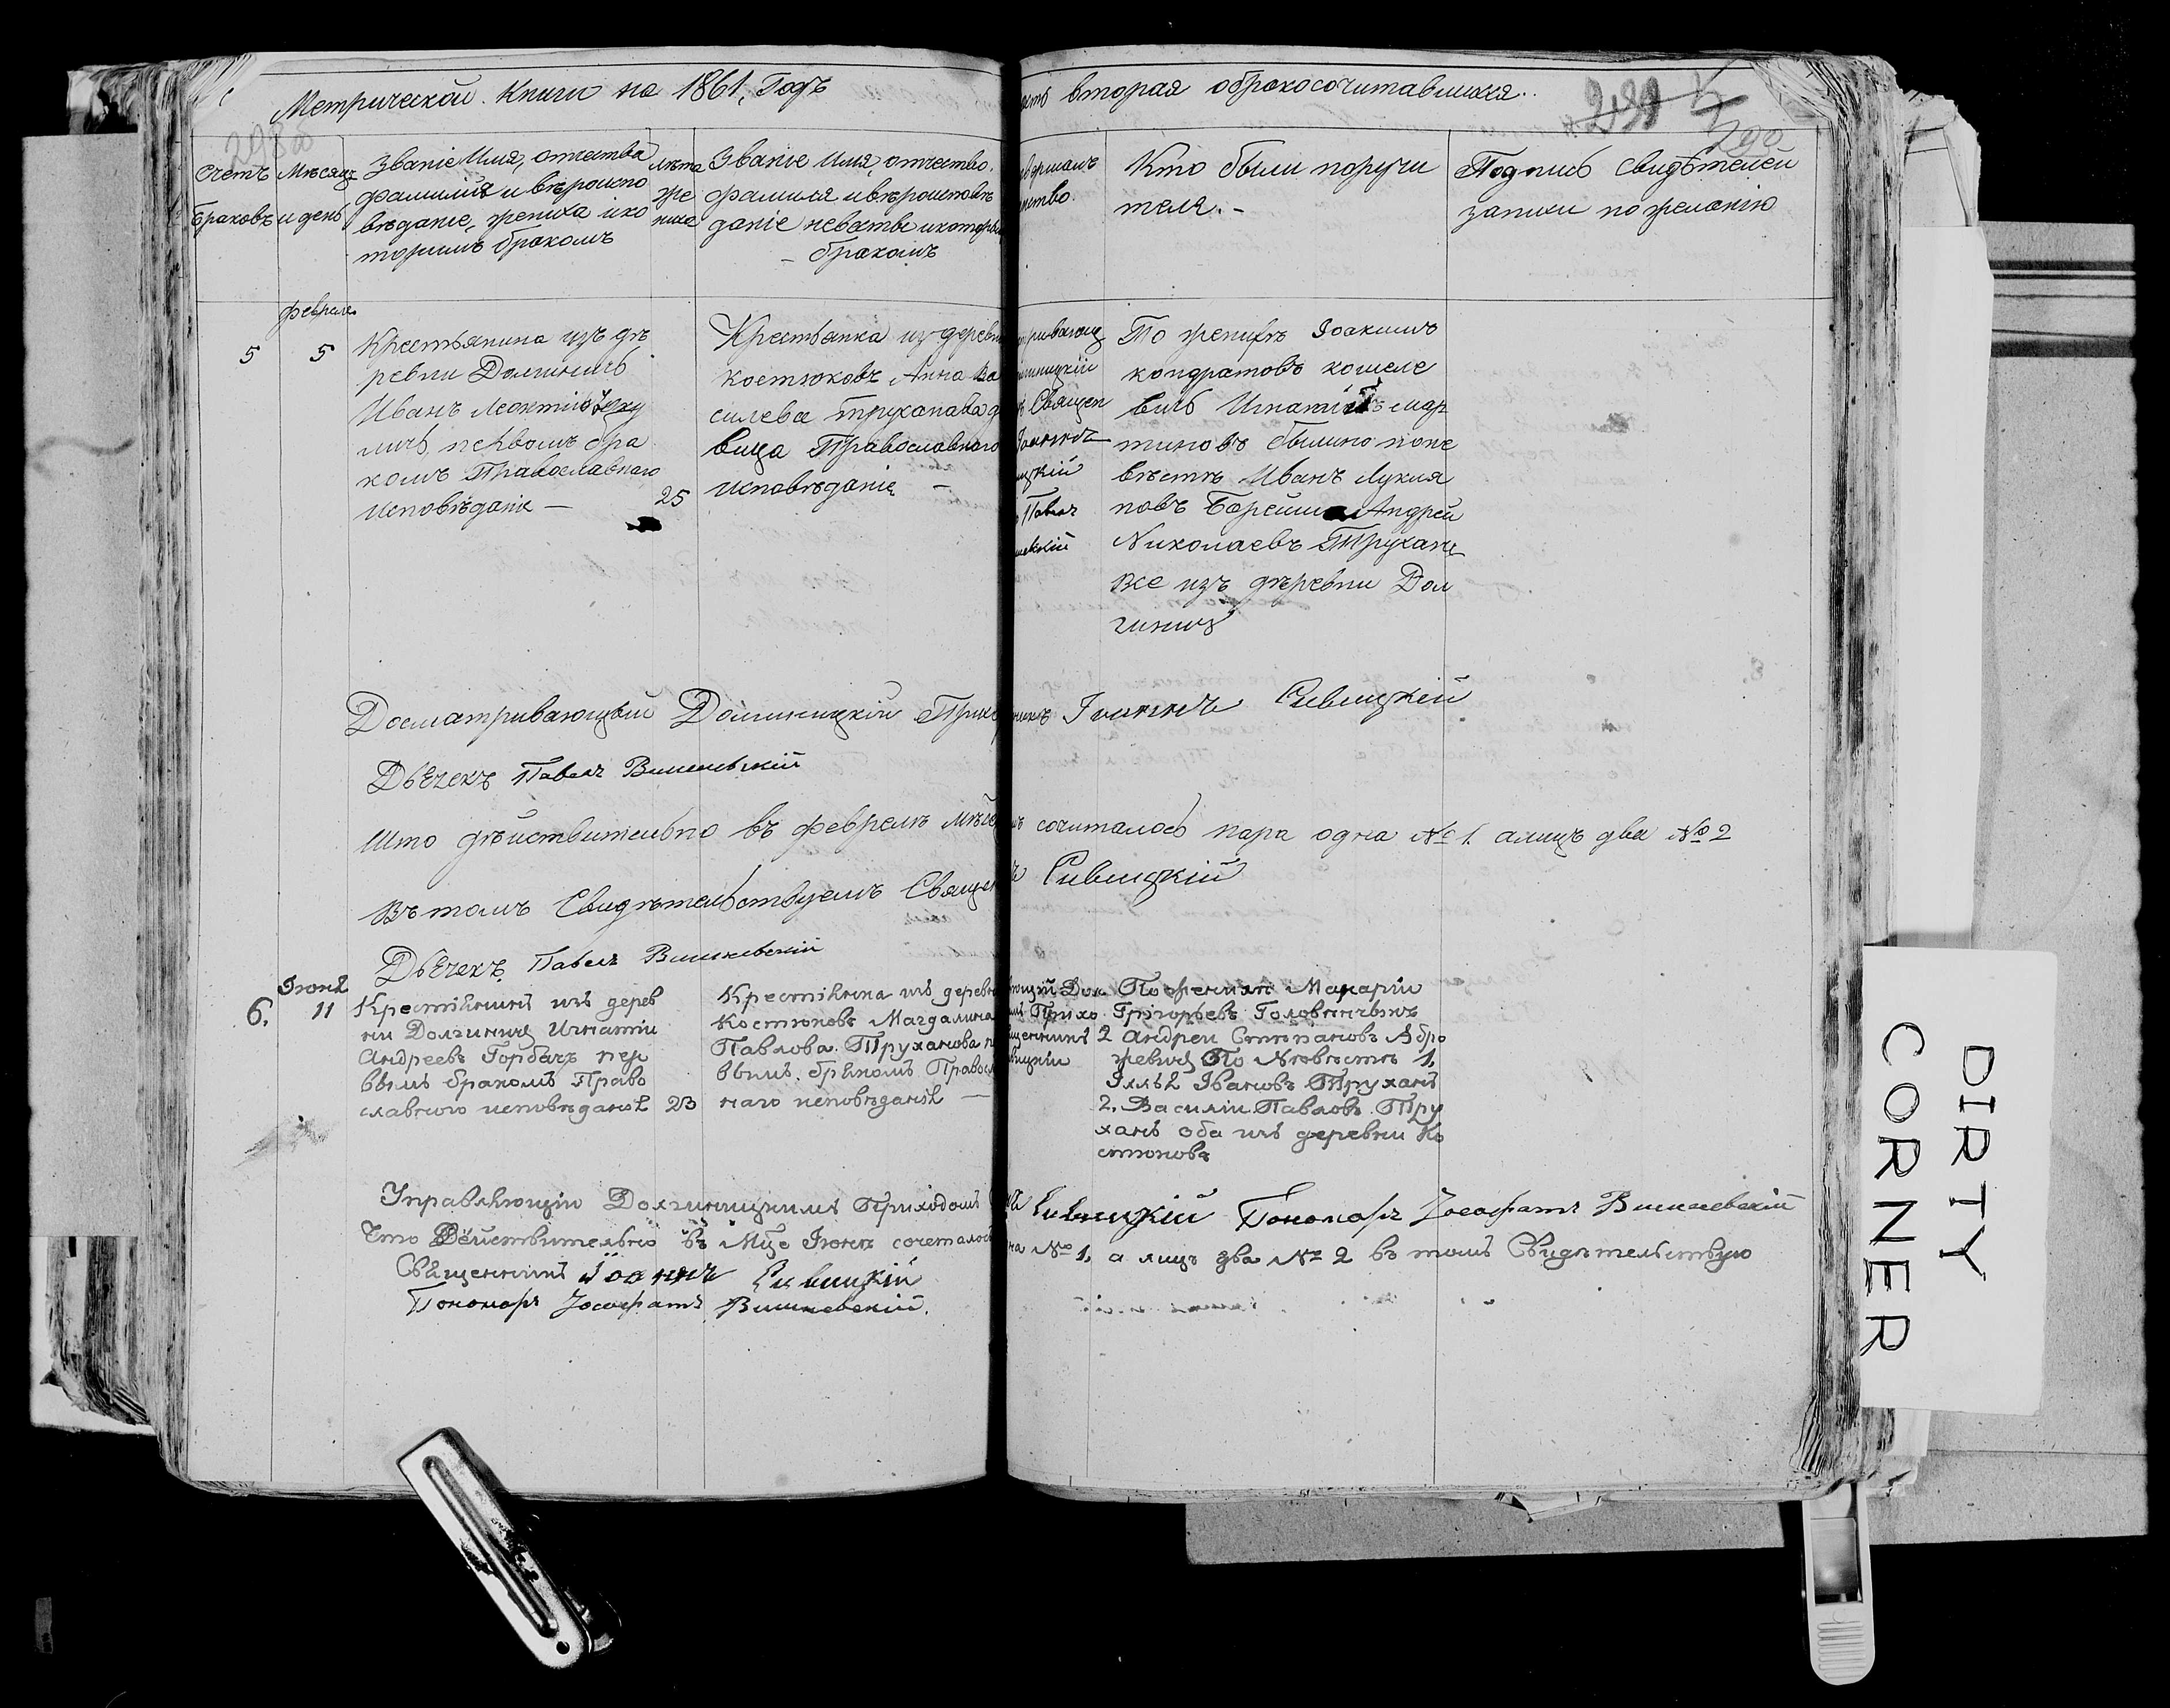 Метрической Книги на 1861, Годъ
сть вторая о бракосочитавшихся..
290
Счетъ Браковъ
Мѣсяцъ и день
Званіе Имя, отчества
фамилия и вѣроиспо
вѣданіе, жениха и ко
торимъ бракомъ
Лѣта
же
ниха
Званіе Имя, отчество.
фамилия и вѣроисповѣ
даніе невѣсты и которы
– бракомъ
вершалъ
нство.
Кто были поручи
теля. –
Подпись Свидѣтелей
записи по желанію
февраля
5
5
Крестьянина изъ дѣ
ревни Долгиничь
Иванъ Леонтіев
личь, первымъ бра
комъ Православнаго
исповѣданія –
25
Крестьянка изъ деревн
Костюковъ Анна Ва
силева Труханова д
вица Православнаго
исповѣданія –
тривающ
гиницкій
ъ Священ
Іоаннъ
ицкій
ъ Павелъ
невскій
По женихѣ Іоакимъ
кондратовъ кошеле
вичь Игнатій мар
тиновъ былино поне
вѣстѣ Иванъ Лукия
новъ Борейша Андрей
Николаевъ Трухане
все изъ дѣревни Дол
гиничь
Досматривающій Долгиницкій Прихо
никъ Іоаннъ Сивицкій
Дьячекъ Павелъ Вишневскій
Што дѣйствительно въ февралѣ Мѣся
сочиталось пара одна № 1. а лицъ два № 2
Въ томъ Свидѣтельствуемъ Священ
Сивицкій
Дьячекъ Павелъ Вишневскій
Іюня
6.
11
Крестіянинъ изъ дерев
ни Долгиничь Игнатіи
Андреевъ Горбачъ пер
вымъ бракомъ Право
славного исповѣданія
23
Крестіянка изъ деревн
Костюковъ Магдалина
Павлова. Труханова п
вымъ. бракомъ Правосл
наго исповѣданія –
ющій Дол
мъ Прихо
щенникъ
вицкіи
По женихѣ Макаріи
Григорьевъ Головничъ
2 Андреи Степановъ Абро
жевичь По Невѣстѣ 1,
Іллья Івановъ Труханъ
2. Василіи Павловъ Тру
ханъ оба изъ деревни Ко
стюковъ
Управляющіи Долгиницкимъ Приходомъ
Сивицкій Пономарь Іосафатъ Вишневскій
Что Действительно въ Мце Іюнѣ сочеталось
на № 1, а лицъ два № 2 въ томъ Свидѣтельствую
Священникъ Іоаннъ Сивицкій
Пономарь Іосафатъ Вишневскій.
DIRTY
CORNER